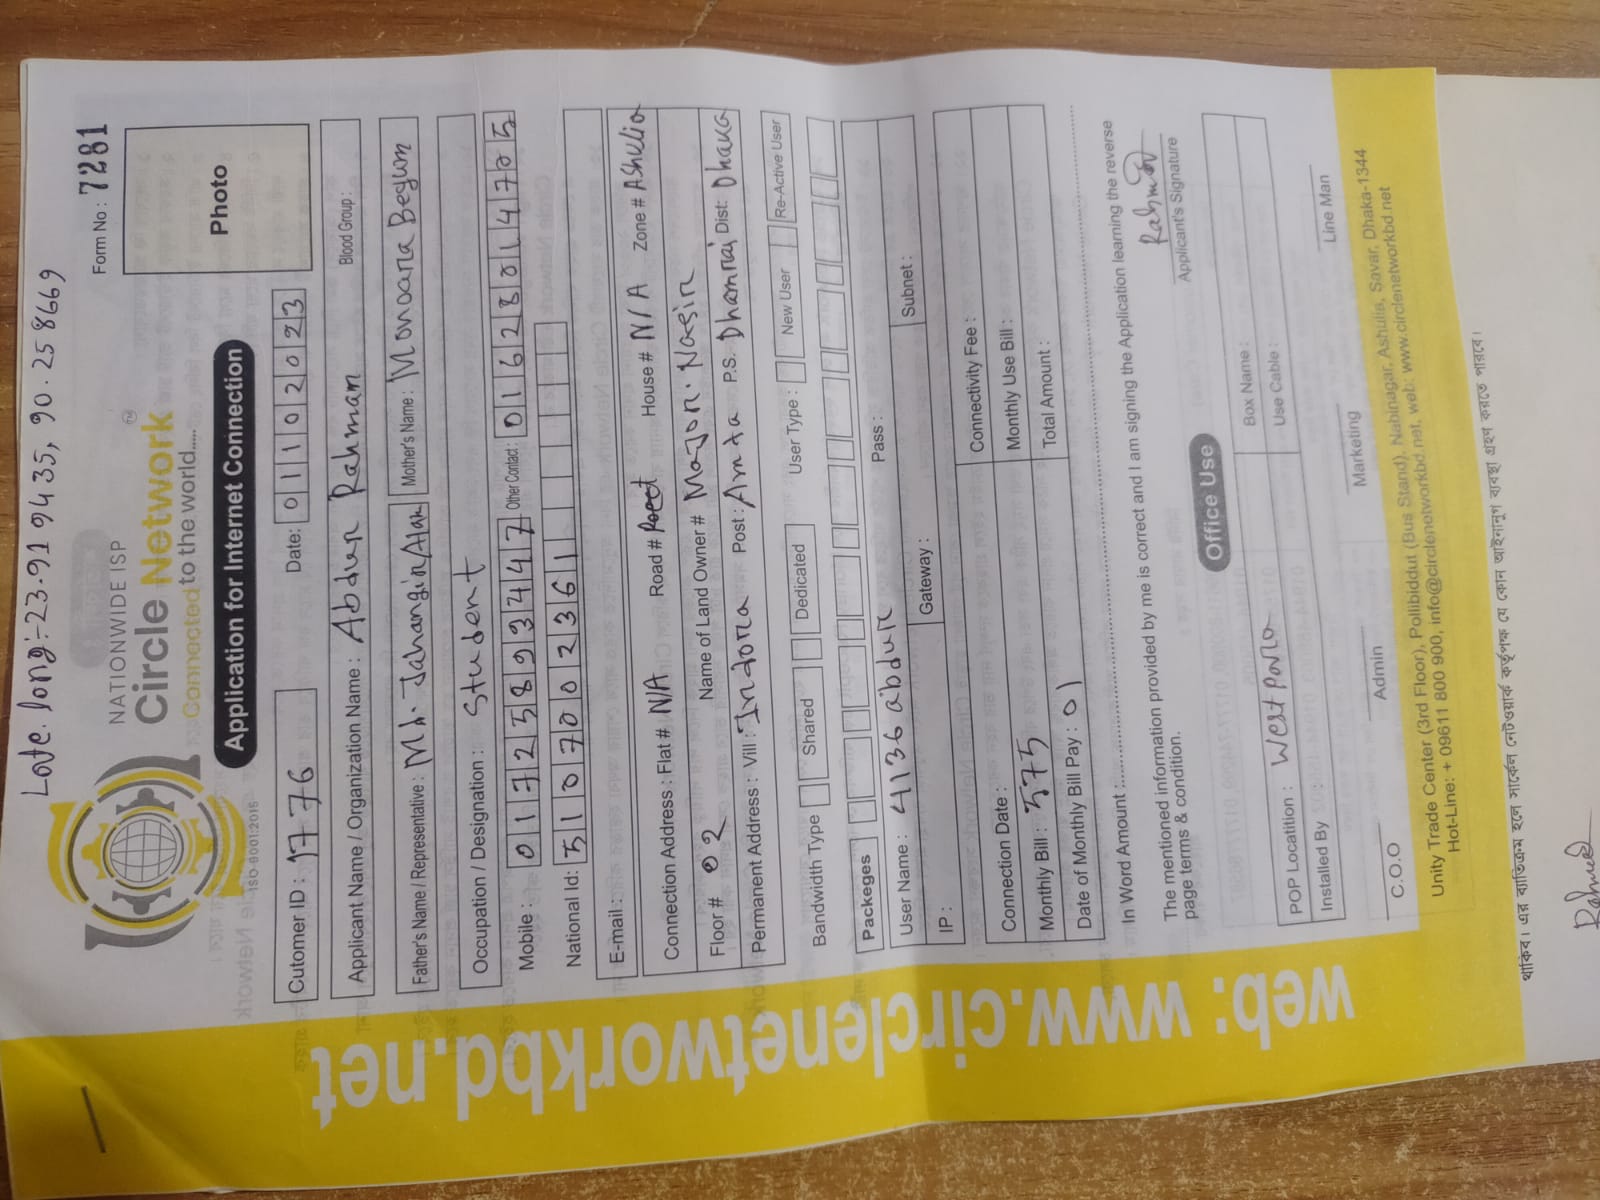 Late. Long:-23.919435, 90.258669
Form No: 7281
NATIONWIDE ISP
Circle Network TM
Connected to the world.....
ISO-9001:2015
Application for Internet Connection
Photo
Cutomer ID: 1776 Date: 01102023
Applicant Name / Organization Name: Abdur Rahman Blood Group:
Father's Name / Representative: Md. Jahangir Alam Mother's Name: Monoara Begum
Occupation / Designation: Student
Mobile: 01725893447 Other Contact: 01628014775
National Id: 5107002361
E-mail:
Connection Address: Flat # N/A Road # House # N/A Zone # Ashulia
Floor # 02 Name of Land Owner # Major Nasir
Permanent Address: Vill: Indora Post: Amta P.S. Dhamrai Dist: Dhaka
Bandwidth Type Shared Dedicated User Type: New User Re-Active User
Packeges
User Name: 4136abdur Pass:
IP: Gateway: Subnet:
Connection Date: Connectivity Fee:
Monthly Bill: 575 Monthly Use Bill:
Date of Monthly Bill Pay: 01 Total Amount:
In Word Amount:
The mentioned information provided by me is correct and I am signing the Application learning the reverse
page terms & condition.
Rahman
Applicant's Signature
Office Use
POP Locatition: West Para Box Name:
Installed By Use Cable:
C.O.O Admin Marketing Line Man
Unity Trade Center (3rd Floor), Pollibiddut (Bus Stand), Nabinagar, Ashulia, Savar, Dhaka-1344
Hot-Line: + 09611 800 900, info@circlenetworkbd.net, web: www.circlenetworkbd.net
web: www.circlenetworkbd.net
থাকিব। এর ব্যতিক্রম হলে সার্কেল নেটওয়ার্ক কর্তৃপক্ষ যে কোন আইনানুগ ব্যবস্থা গ্রহণ করতে পারবে।